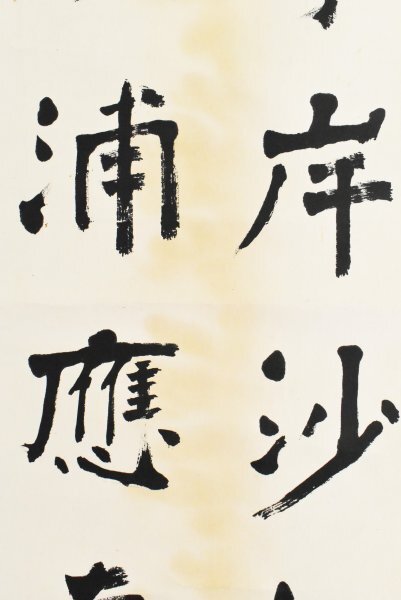 岸沙
浦應